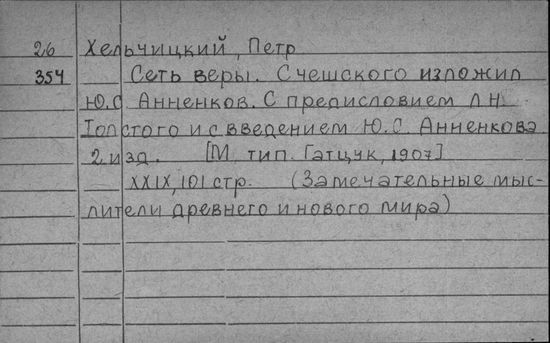 26 Хельчицкий, Петр
354 Сеть веры. С чешского изложил
Ю.С. Анненков. С предисловием Л.Н.
Толстого и с введением Ю.С. Анненкова.
2 изд. [М. тип. Гатцук, 1907]
XXIX, 101 стр. (Замечательные мыс-
лители древнего и нового мира)